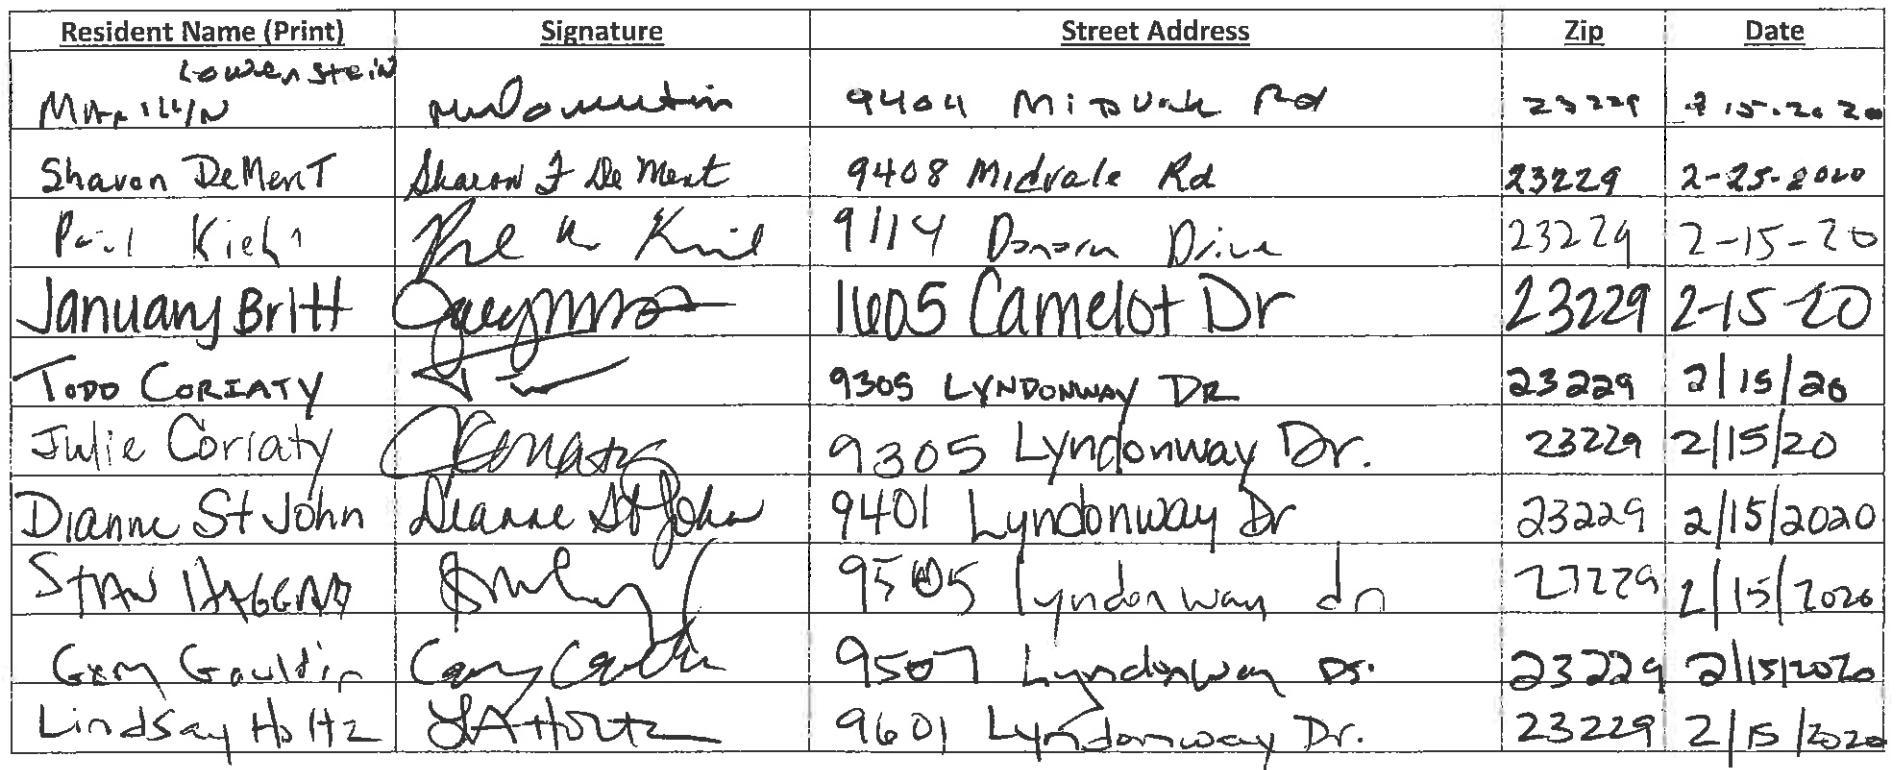 Resident Name (Print) Signature Street Address Zip Date
Lowenstein
Marilyn 9404 Rd 23229 15-2020
Sharon DeMenT Sharon F DeMent 9408 Midvale Rd 23229 2-25-2020
Paul Kiehl 9114 Donora Drive 23229 2-15-20
January Britt 1605 Camelot Dr 23229 2-15-20
TODD CORIATY 9305 LYNDONWAY DR 23229 2/15/20
Julie Coriaty JCoriaty 9305 Lyndonway Dr. 23229 2/15/20
Dianne St John Dianne St John 9401 Lyndonway Dr 23229 2/15/2020
STAN HAGGARD 9505 lyndonway dr 23229 2/15/2020
Gary Gauldin 9507 Lyndonway Dr. 23229 2/15/2020
Lindsay Holtz LAHoltz 9601 Lyndonway Dr. 23229 2/15/2020